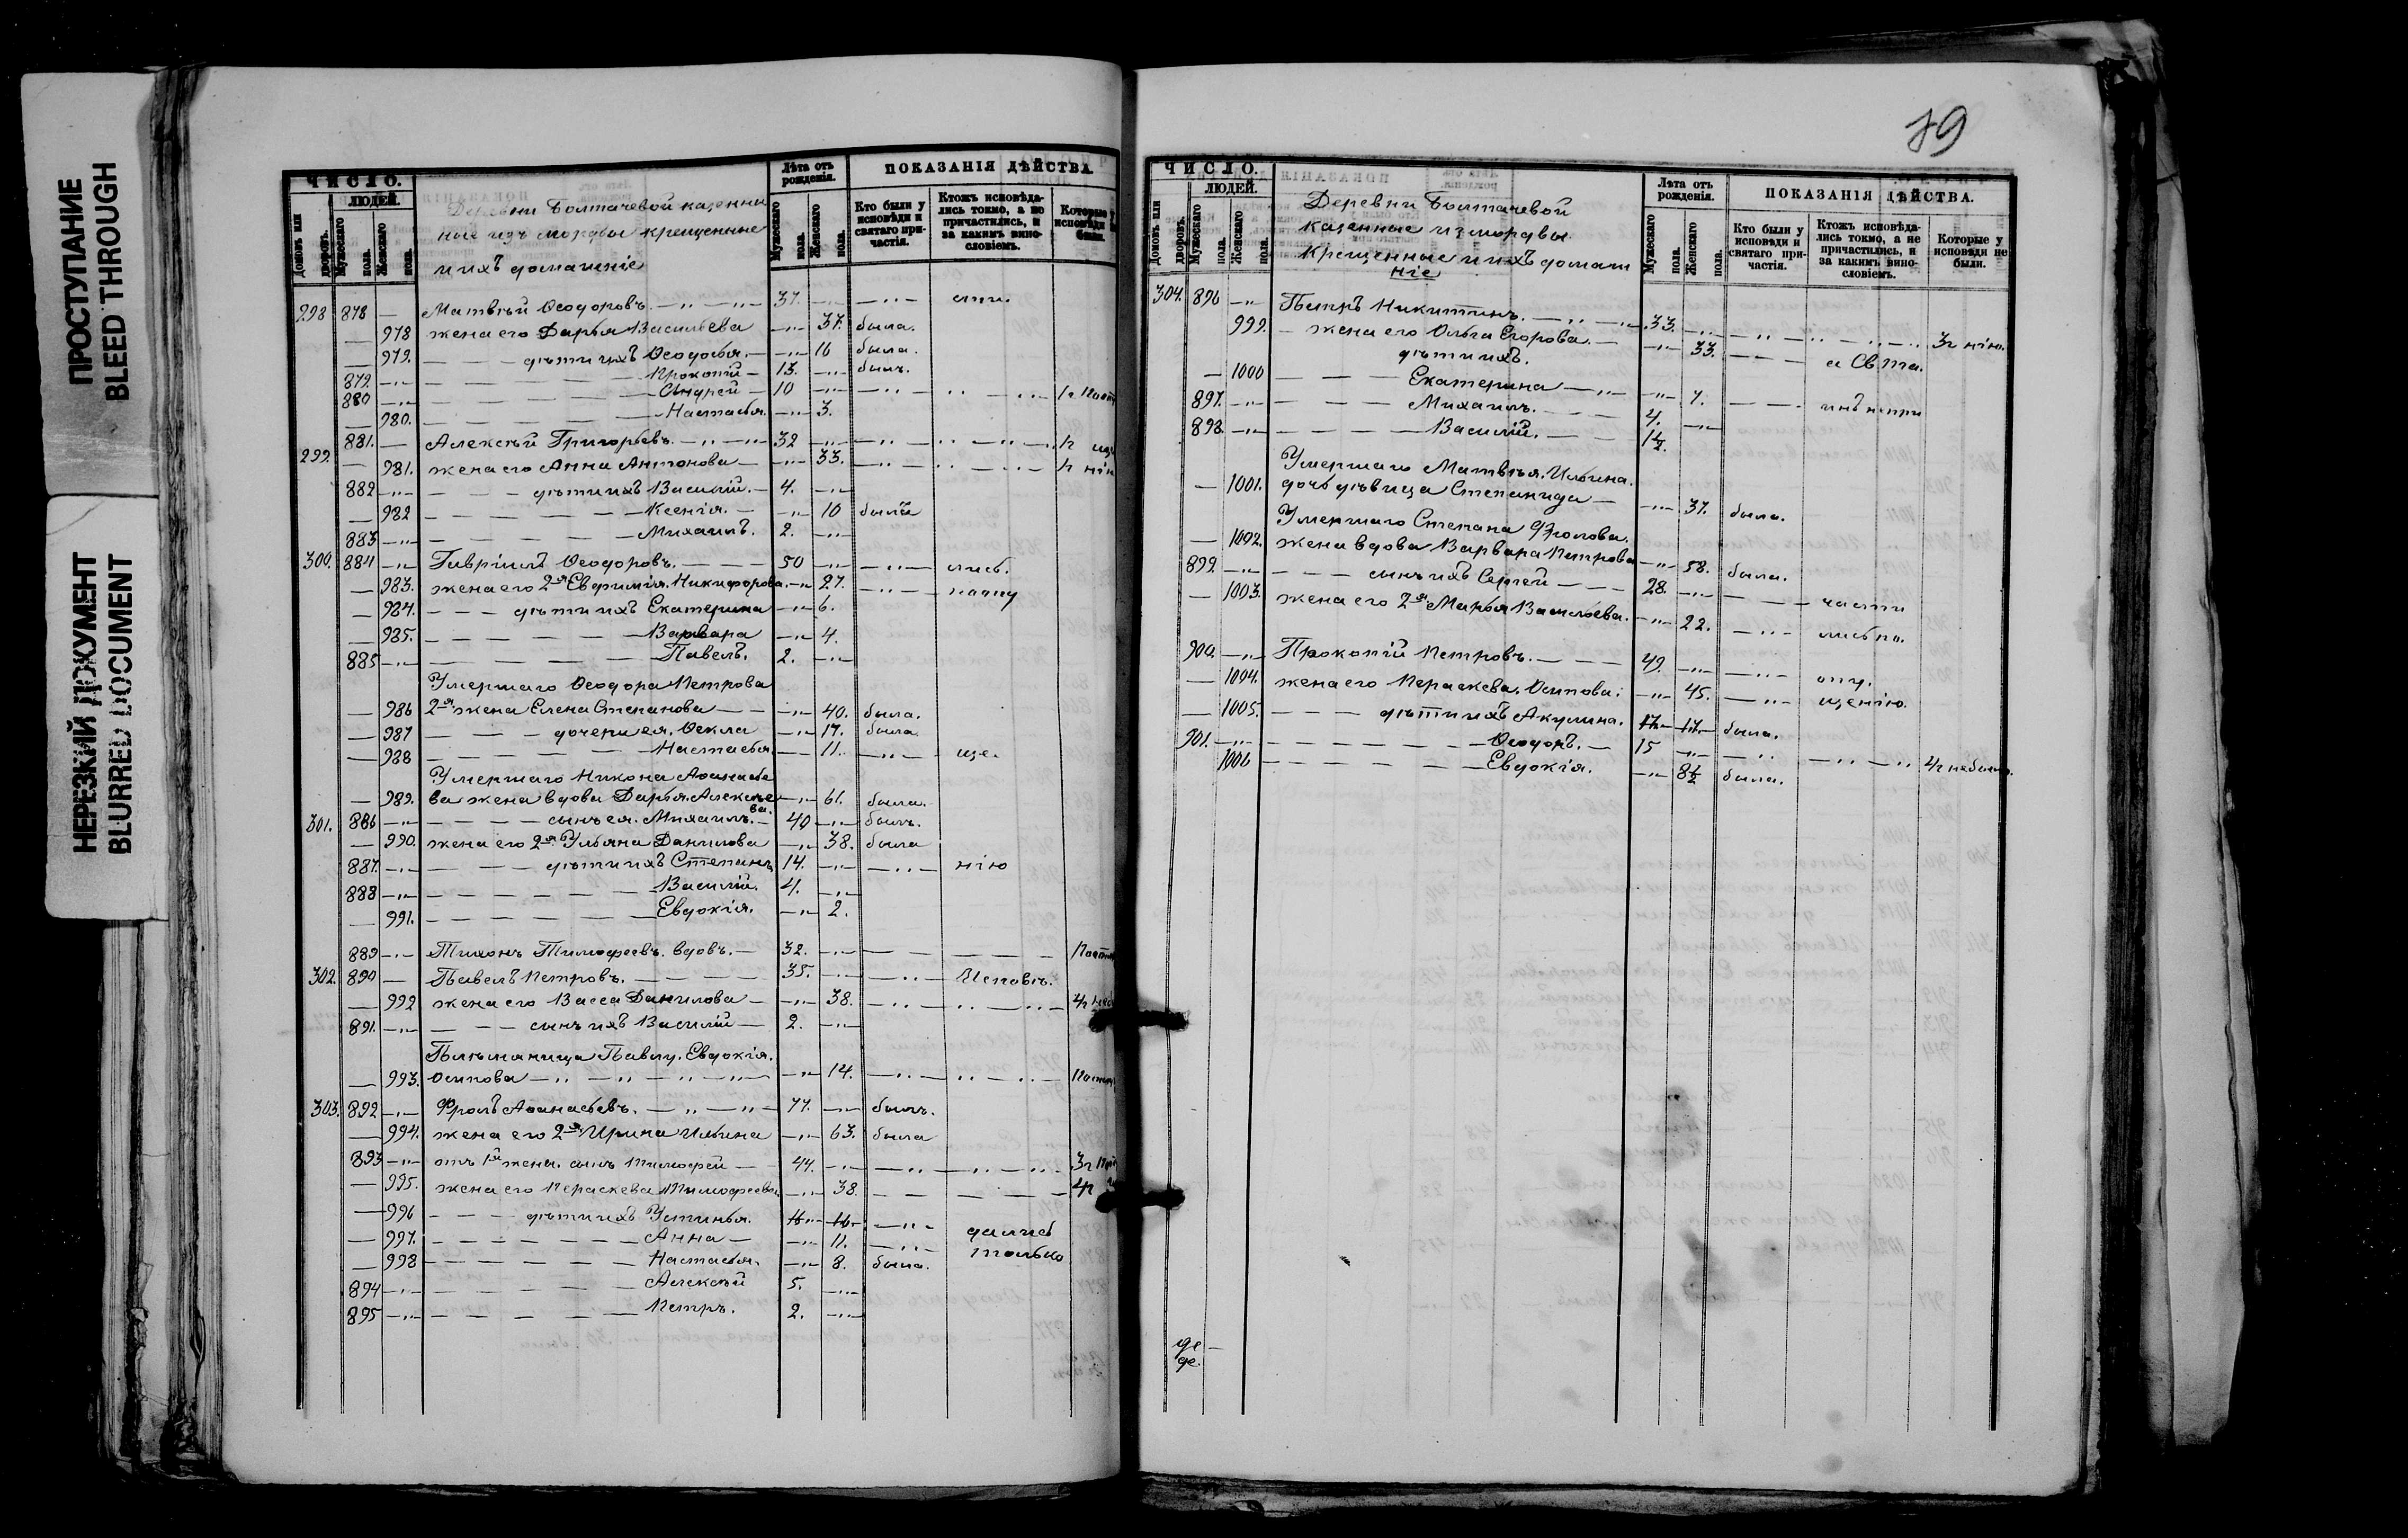 ПРОСТУПАНИЕ
BLEED THROUGH
НЕРЕЗКИЙ ДОКУМЕНТ
BLURRED DOCUMENT
ЧИСЛО.
ЛЮДЕЙ.
Домовъ или дворовъ.
Мужескаго пола.
Женскаго пола.
Деревни Болтачевой казенны
ные изъ мордвы крещенные
и ихъ домашніе
Лѣта отъ рожденія.
Мужескаго пола.
Женскаго пола.
ПОКАЗАНІЯ ДѢЙСТВА.
Кто были у исповѣди и святаго причастія.
Ктожъ исповѣдались токмо, а не причастились, и за какимъ винословіемъ.
Которые у исповѣди не были.
298 878 — Матвѣй Ѳеодоровъ. 37.
— 978 жена его Дарья Васильева 37. была.
— 979. дѣти ихъ Ѳеодосья. 16 была.
879. Прокопій 13. былъ.
880 Андрей 10
— 980. Настасья. 3.
299. 881. — Алексѣй Григорьевъ. 32
— 981. жена его Анна Антонова 33.
882 дѣти ихъ Василій. 4.
— 982 Ксенія. 10 была
883 Михаилъ. 2.
300. 884 Гавріилъ Ѳеодоровъ. 50
— 983. жена его 2я Евфимія. Никифорова. 27.
— 984. дѣти ихъ Екатерина 6.
— 985. Варвара 4.
885 Павелъ. 2.
Умершаго Ѳеодора Петрова
— 986 2я жена Елена Степанова 40. была.
— 987 дочери ея. Ѳекла 17. была.
— 988 Настасья. 11. ще.
Умершаго Никона Аѳанасье
— 989. ва жена вдова Дарья. Алексѣе 61. была.
ва.
301. 886 сынъ ея. Михаилъ. 40 былъ.
— 990. жена его 2я Ульяна Данилова 38. была
887. дѣти ихъ Степанъ 14. нію
888 Василій. 4.
— 991. Евдокія. 2.
889 Тихонъ Тимофеевъ. вдовъ. 32.
302. 890 — Павелъ Петровъ. 35. Исповѣ.
— 992 жена его Васса Данилова 38.
891. сынъ ихъ Василій 2.
Племяница Павлу. Евдокія.
— 993. Осипова 14.
303. 892 Фролъ Аѳанасьевъ. 77. былъ.
— 994. жена его 2я Ирина Ильина 63. была
893 отъ 1й жены. сынъ Тимофей 44.
— 995. жена его Пераскева Тимофеева 38.
— 996 дѣти ихъ Устинья. 16
— 997. Анна 11. только
— 998 Настасья. 8. была.
894 Алексѣй 5.
895 Петръ. 2.
79
ЧИСЛО.
ЛЮДЕЙ.
Домовъ или дворовъ.
Мужескаго пола.
Женскаго пола.
Деревни Болтачевой
казенные из мордвы
крещенные и ихъ домаш
ніе
Лѣта отъ рожденія.
Мужескаго пола.
Женскаго пола.
ПОКАЗАНІЯ ДѢЙСТВА.
Кто были у исповѣди и святаго причастія.
Ктожъ исповѣдались токмо, а не причастились, и за какимъ винословіемъ.
Которые у исповѣди не были.
304. 896 Петръ Никитинъ. 33. 3г нію.
999. жена его Ольга Егорова. 33. и Св та.
дѣти ихъ.
— 1000 Екатерина 7.
897. Михаилъ. 4.
898. Василій. 1/2.
Умершаго Матвѣя. Ильина.
— 1001. дочь дѣвица Степанида 37. была.
Умершаго Степана Фролова.
— 1002. жена вдова Варвара Петрова 58. была.
899. сынъ ихъ Сергей 28. части
— 1003. жена его 2я Марья Васильева. 22. лись по.
900. Прокопій Петровъ. 49. опу.
— 1004. жена его Пераскева. Осипова. 45. щенію.
— 1005. дѣти ихъ Акулина. 17 была.
901. Ѳеодоръ. 15
1006 Евдокія. 8 1/2 была.